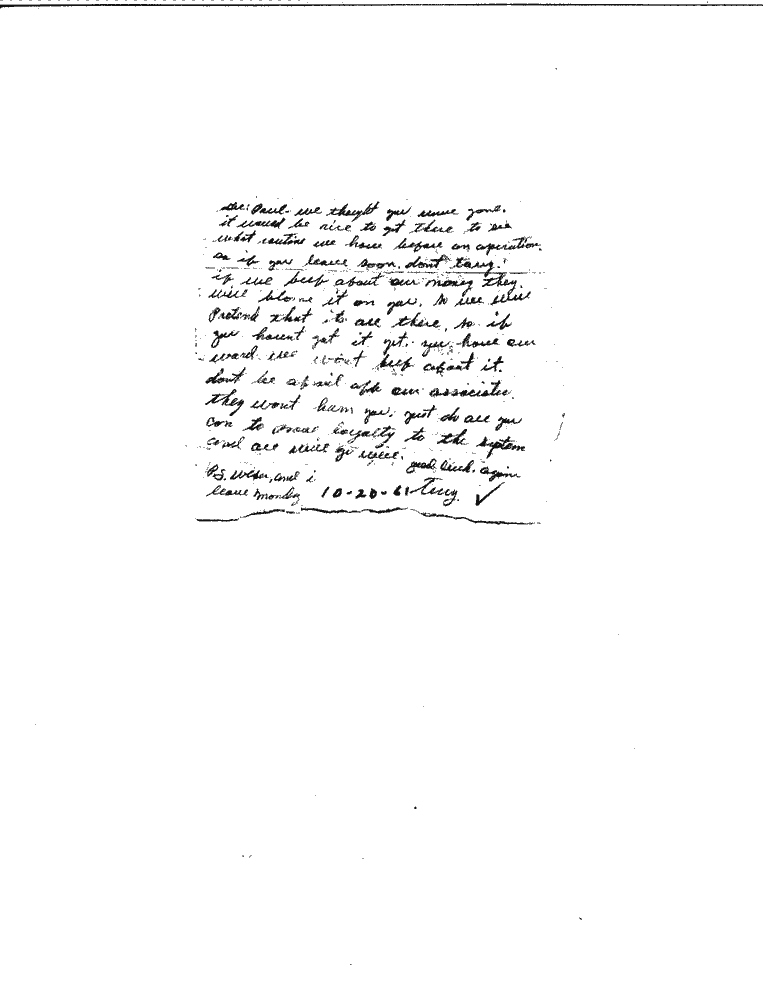 Paul. we thought you were gone.
it would be nice to get there to see
what routine we have before an operation.
so if you leave soon, dont tarry.
if we beef about our money they
will blame it on you, so we will
Pretend that its all there, so if
you havent got it yet. you have our
word we wont beef about it.
dont be afraid of our associates.
they wont harm you, just do all you
can to prove loyalty to the system
and all will go well. good luck. again
P.S. and i
leave monday 10-20-61 Terry